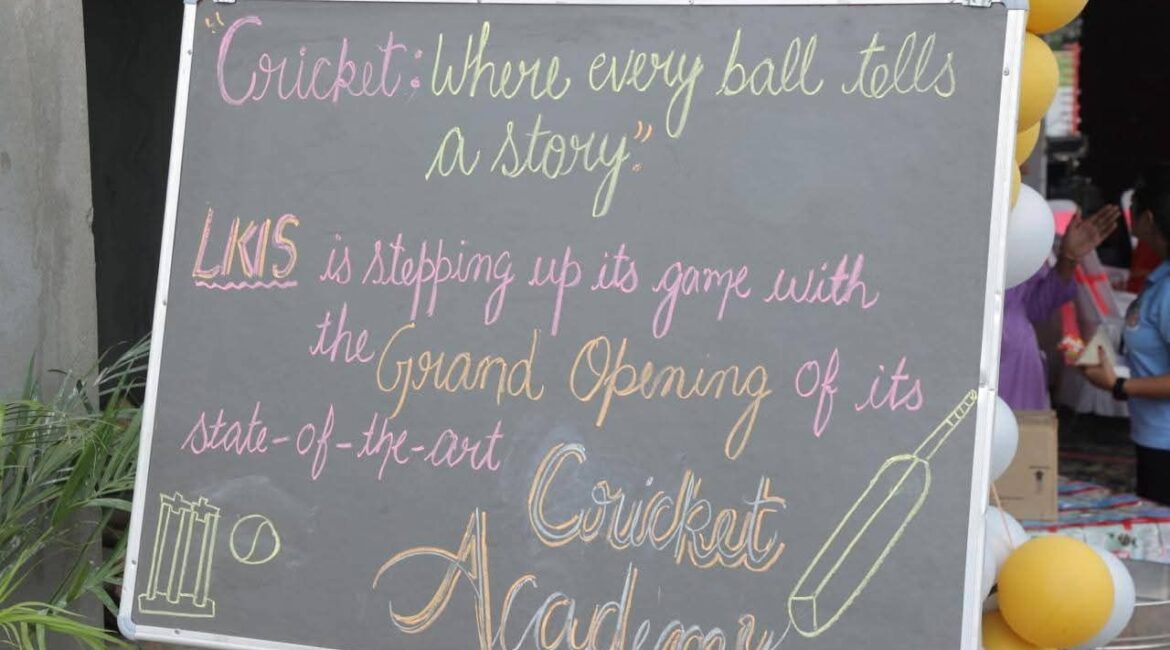 "Cricket: Where every ball tells
a story."
LKIS is stepping up its game with
the Grand Opening of its
state-of-the-art
Cricket
Academy